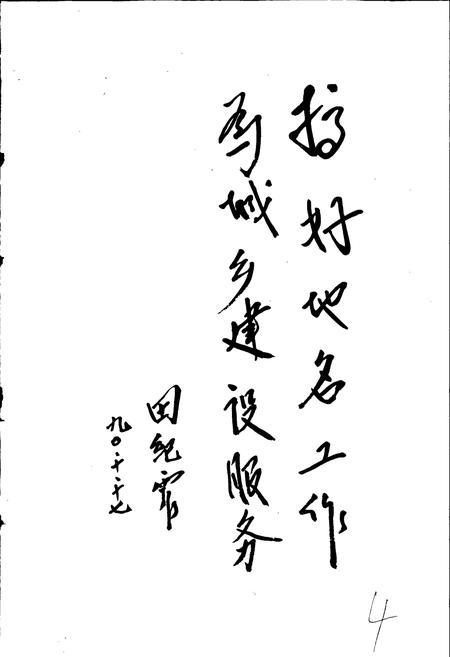 搞好地名工作
为城乡建设服务
田纪
九〇.十.十七
4